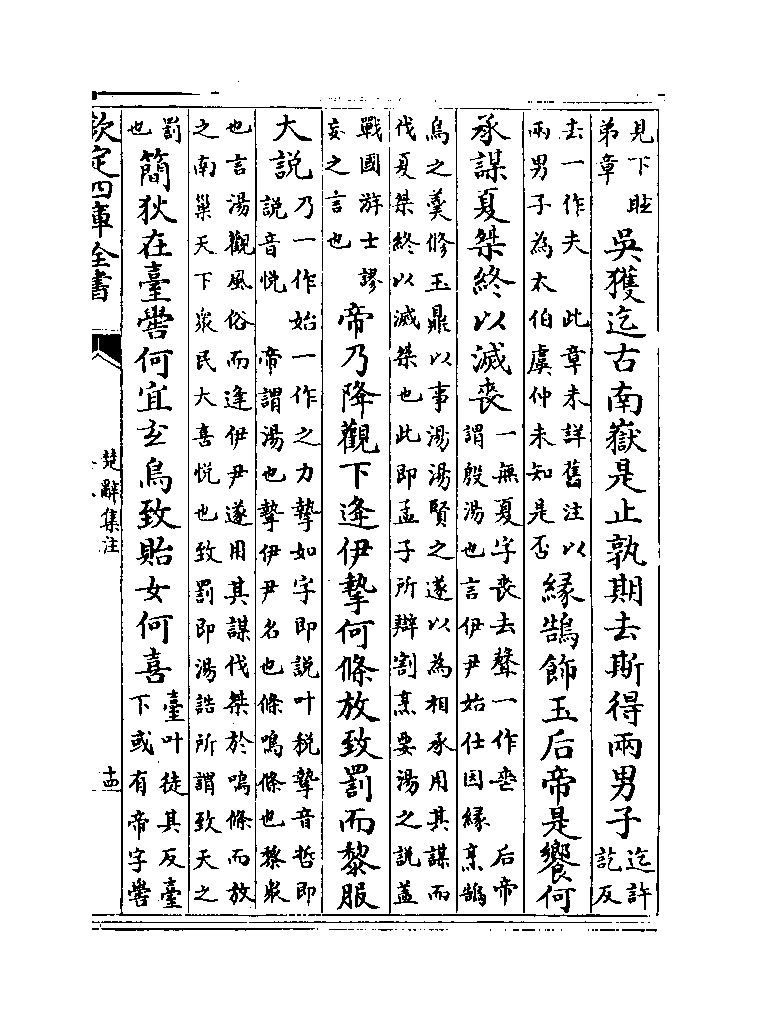 見下眡
弟章
吳獲迄古南嶽是止孰期去斯得兩男子
迄許
訖反
去一作夫　此章未詳舊注以
兩男子為太伯虞仲未知是否
緣鵠飾玉后帝是饗何
承謀夏桀終以滅喪
一無夏字喪去聲一作　后帝
謂殷湯也言伊尹始仕因緣烹鵠
鳥之羹修玉鼎以事湯湯賢之遂以為相承用其謀而
伐夏桀終以滅桀也此即孟子所辯割烹要湯之説葢
戰國游士謬
妄之言也
帝乃降觀下逢伊摯何條放致罰而黎服
大説
乃一作始一作之力摯如字即説叶税摯音哲即
説音悦　帝謂湯也摯伊尹名也條鳴條也黎衆
也言湯觀風俗而逢伊尹遂用其謀伐桀於鳴條而放
之南巢天下衆民大喜悦也致罰即湯誥所謂致天之
罰
也
簡狄在臺嚳何宜玄鳥致貽女何喜
臺叶徒其反臺
下或有帝字嚳
欽定四庫全書
楚辭集注
十四